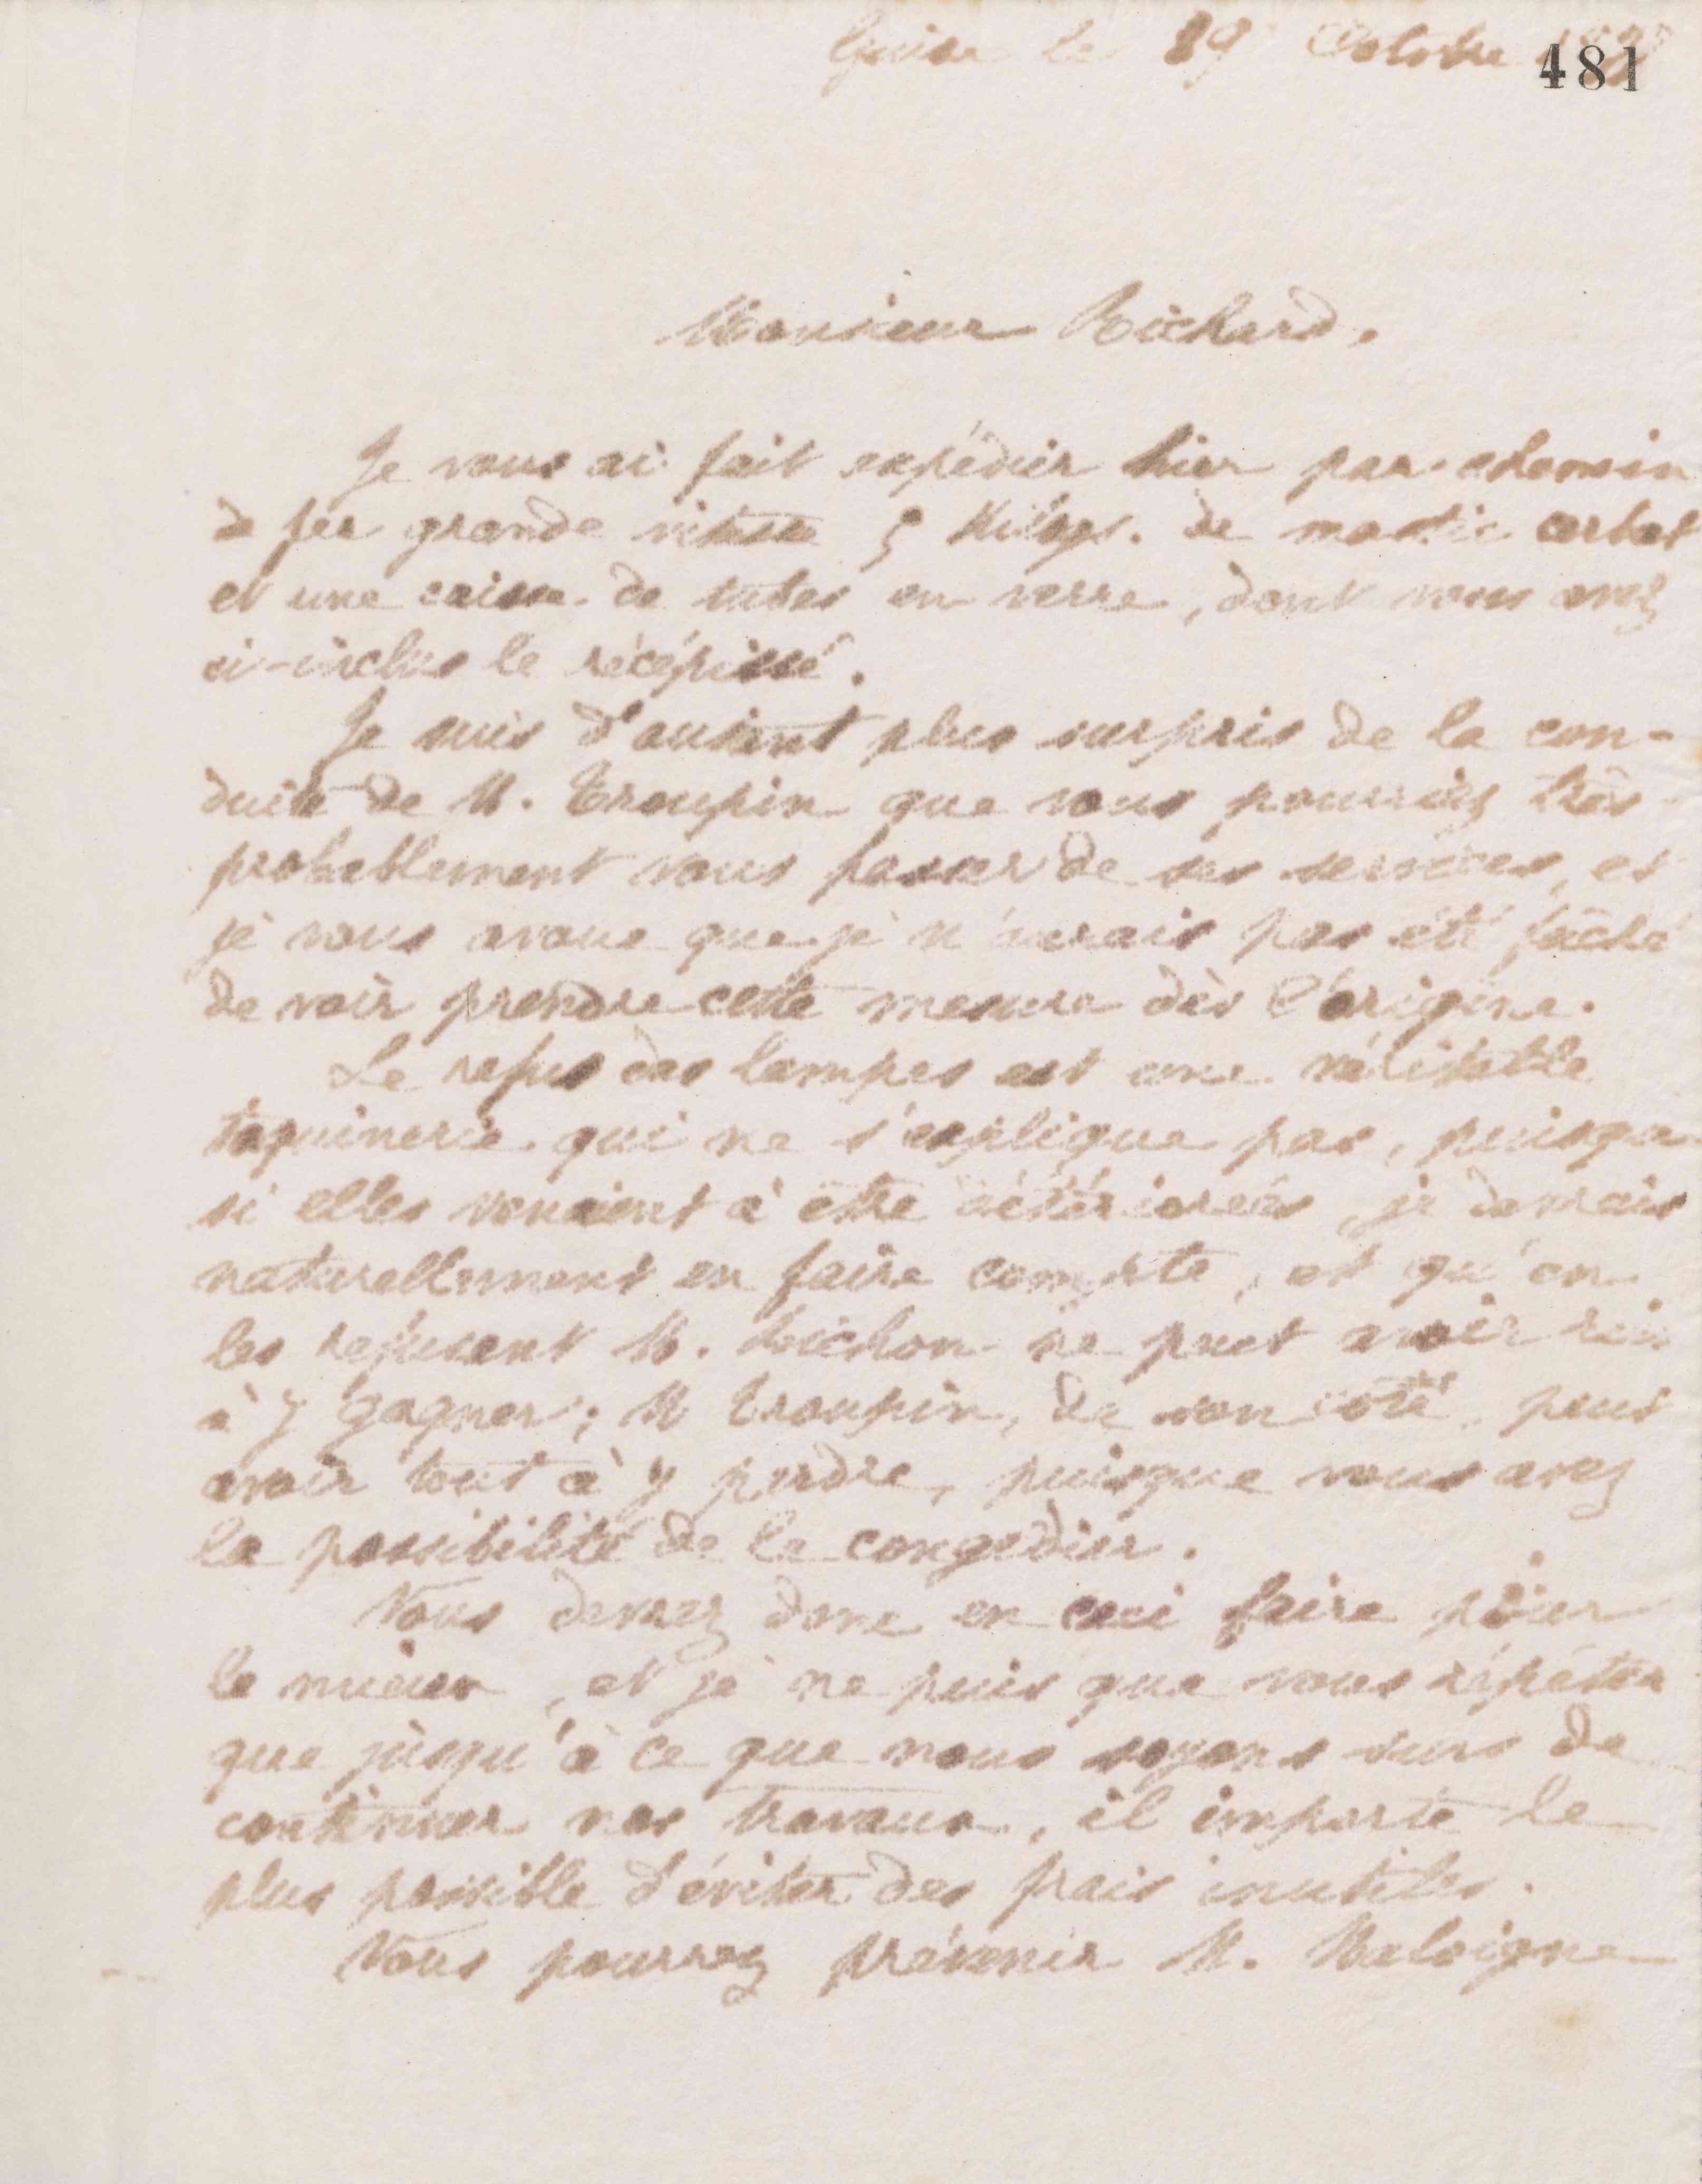 Guise le 29 Octobre
481
Monsieur Richard,
Je vous ai fait expédier hier par chemin
de fer grande vitesse 5 Kilogs. de mastic corbet
et une caisse de tubes en verre, dont vous avez
ci-inclus le récépissé.
Je suis d'autant plus surpris de la con-
duite de M. Troupin que vous pourriez très
probablement vous passer de ses services, et
je vous avoue que je n'aurais pas été fâché
de voir prendre cette mesure dès l'origine.
Le refus des lampes est une véritable
taquinerie qui ne s'explique pas, puisque
si elles venaient à être détériorées, je devrais
naturellement en faire compte, et qu'en
les refusant M. ne peut avoir rien
à y gagner; M Troupin, de son côté, peut
avoir tout à y perdre, puisque vous avez
la possibilité de le congédier.
Vous devrez donc en ceci faire pour
le mieux, et je ne puis que vous répéter
que jusqu'à ce que nous soyons surs de
continuer nos travaux, il importe le
plus possible d'éviter des frais inutiles.
Vous pourrez prévenir M. Maloigne